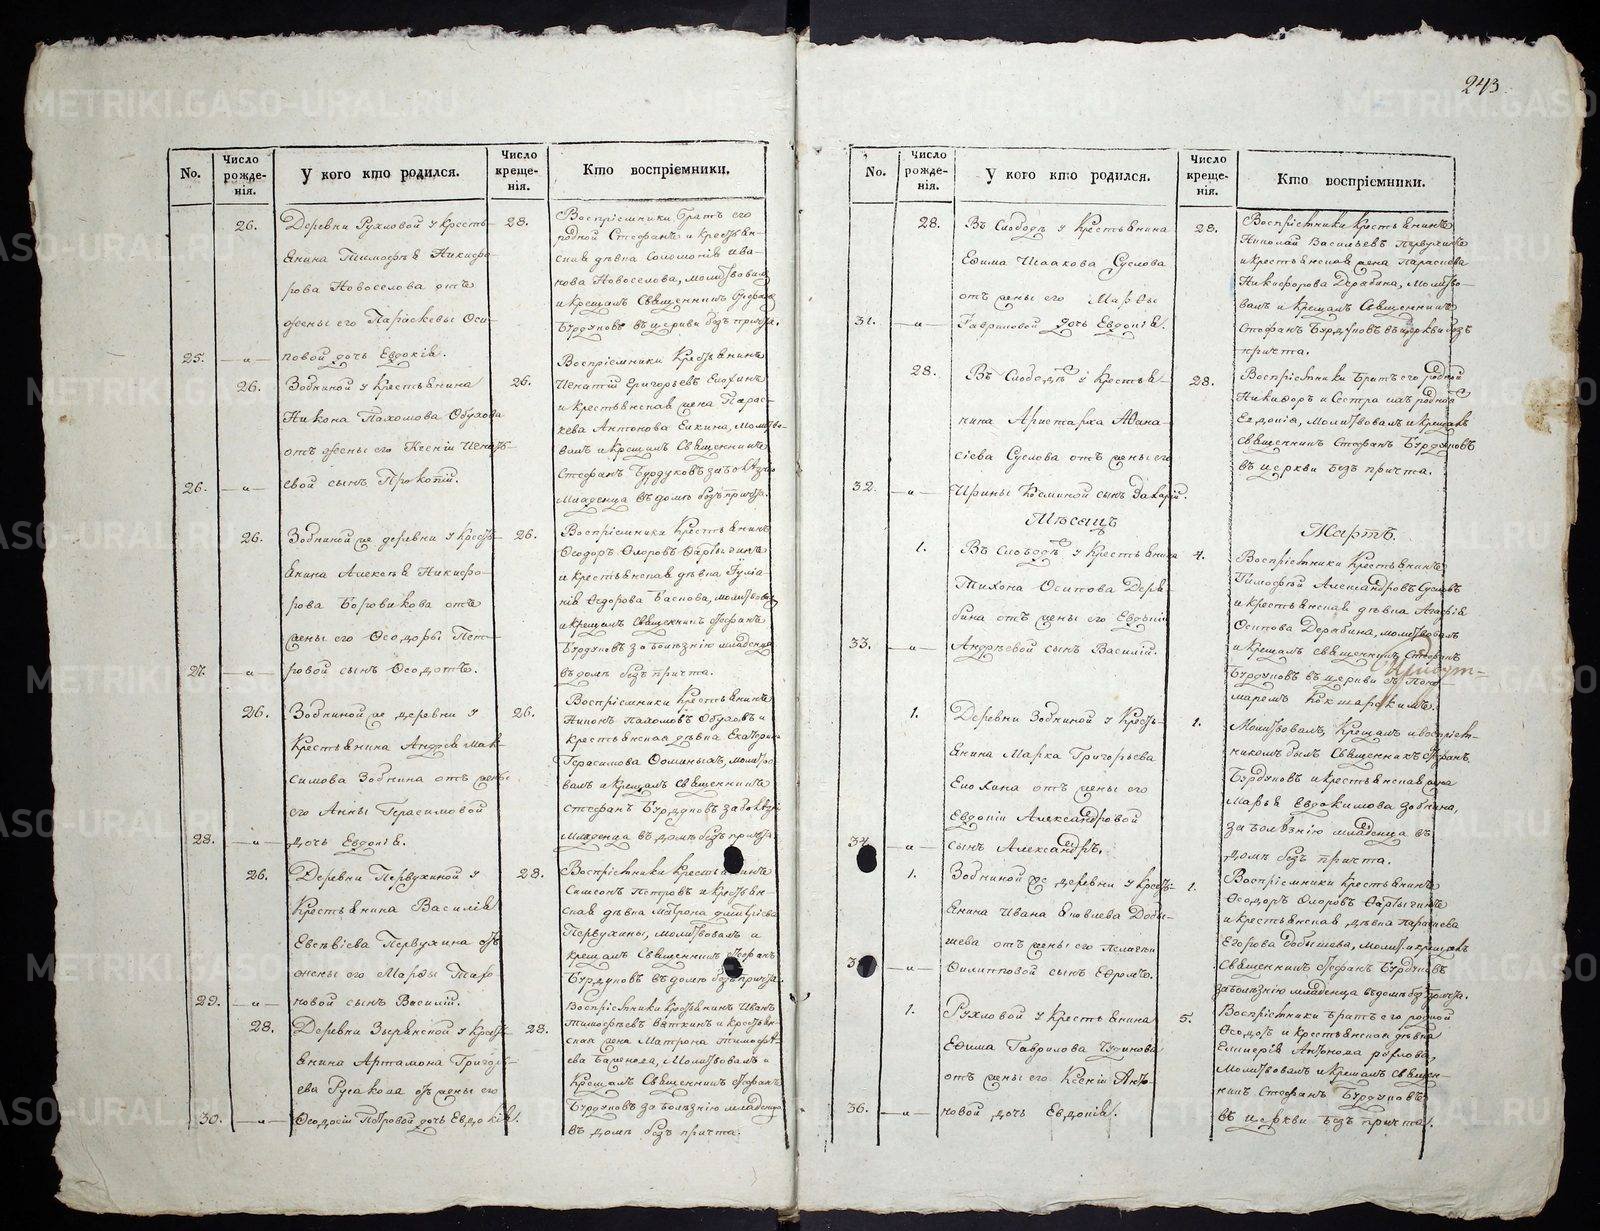 243
No.
Число рожде-нія.
У кого кто родился.
Число креще-нія.
Кто воспріемники.
26.
Деревни Рухловой у кресть-
янина Тимофѣя Никифо-
рова Новоселова отъ
жены его Параскевы Оси-
25. —„— повой дочь Евдокія.
28.
Воспріемники братъ его
родной Стефанъ и крестьян-
ская дѣвка Соломонія Ива-
нова Новоселова, молитвовалъ
и крещалъ Священникъ Стефанъ
Бурдуковъ въ церкви безъ причта.
26.
Зобниной у крестьянина
Никона Пахомова Обухова
отъ жены его Ксеніи Игнать-
26. —„— евой сынъ Прокопій.
26.
Воспріемники крестьянинъ
Игнатій Григорьевъ Елохинъ
и крестьянская жена Парас-
кева Антонова Екина, молитво-
валъ и крещалъ Священникъ
Стефанъ Бурдуковъ за болѣзнію
младенца въ домѣ безъ причта.
26.
Зобниной же деревни у кресть-
янина Алексѣя Никифо-
рова Боровикова отъ
жены его Ѳеодоры Пет-
27. —„— ровой сынъ Ѳеодотъ.
26.
Воспріемники крестьянинъ
Ѳеодоръ Флоровъ
и крестьянская дѣвка Гуліа-
нія Ѳедорова молитвовалъ
и крещалъ Священникъ Стефанъ
Бурдуковъ за болѣзнію младенца
въ домѣ безъ причта.
26.
Зобниной же деревни у
крестьянина Андрея Мак-
симова Зобнина отъ жены
его Анны Герасимовой
28. —„— дочь Евдокія.
26.
Воспріемники крестьянинъ
Никонъ Пахомовъ Обуховъ и
крестьянская дѣвка Екатерина
Герасимова Ѳоминыхъ, молитво-
валъ и крещалъ Священникъ
Стефанъ Бурдуковъ за болѣзнію
младенца въ домѣ безъ причта.
26.
Деревни Первухиной у
крестьянина Василія
Евсѣвіева Первухина отъ
жены его Марѳы Тихо
29. —„— новой сынъ Василій.
28.
Воспріемники крестьянинъ
Симеонъ Петровъ и крестьян-
ская дѣвка Матрона Димитріева
Первухины, молитвовалъ и
крещалъ Священникъ Стефанъ
Бурдуковъ въ домѣ безъ причта.
28.
Деревни Зырянской у кресть-
янина Артамона Григорь-
ева Русакова отъ жены его
30. —„— Ѳеодосіи Петровой дочь Евдокія.
28.
Воспріемники крестьянинъ Иванъ
Тимофѣевъ Вяткинъ и крестьян-
ская жена Матрона Тимофѣ-
ева молитвовалъ и
крещалъ Священникъ Стефанъ
Бурдуковъ за болѣзнію младенца
въ домѣ безъ причта.
No.
Число рожде-нія.
У кого кто родился.
Число креще-нія.
Кто воспріемники.
28.
Въ Слободѣ у крестьянина
Ефима Исаакова Суслова
отъ жены его Марѳы
31. —„— Гавриловой дочь Евдокія.
28.
Воспріемники крестьянинъ
Николай Васильевъ Первухинъ
и крестьянская жена Параскева
Никифорова Дерябина, молитво-
валъ и крещалъ Священникъ
Стефанъ Бурдуковъ въ церкви безъ
причта.
28.
Въ Слободѣ у крестья-
нина Аристарха Аѳана-
сіева Суслова отъ жены его
32. —„— Ирины Косминой сынъ Захарій.
28.
Воспріемники братъ его родной
Никифоръ и сестра ихъ родная
Евдокія, молитвовалъ и крещалъ
Священникъ Стефанъ Бурдуковъ
въ церкви безъ причта.
Мѣсяцъ Мартъ.
1.
Въ Слободѣ у крестьянина
Тихона Осипова Деря-
бина отъ жены его Евдокіи
33. —„— Андреевой сынъ Василій.
4.
Воспріемники крестьянинъ
Тимофей Александровъ Сусловъ
и крестьянская дѣвка Агафія
Осипова Дерябина, молитвовалъ
и крещалъ Священникъ Стефанъ
Бурдуковъ въ церкви съ Поно-
маремъ Кокшарскимъ.
1.
Деревни Зобниной у кресть-
янина Марка Григорьева
Елохина отъ жены его
Евдокіи Александровой
34. —„— сынъ Александръ.
1.
Молитвовалъ, крещалъ и воспріем-
никомъ былъ Священникъ Стефанъ
Бурдуковъ и крестьянская жена
Марья Евдокимова Зобнина,
за болѣзнію младенца въ
домѣ безъ причта.
1.
Зобниной же деревни у кресть-
янина Ивана Яковлева Добы-
шева отъ жены его Пелагеи
—„— Филипповой сынъ Ефремъ.
1.
Воспріемники крестьянинъ
Ѳеодоръ Флоровъ
и крестьянская дѣвка Параскева
Егорова Добышева, молит. и крещалъ
Священникъ Стефанъ Бурдуковъ
за болѣзнію младенца въ домѣ безъ причта.
1.
Рухловой у крестьянина
Ефима Гаврилова Чудинова
отъ жены его Ксеніи Анто-
36. —„— новой дочь Евдокія.
5.
Воспріемники братъ его родной
Ѳеодотъ и крестьянская дѣвка
Гликерія Антонова
молитвовалъ и крещалъ Священ-
никъ Стефанъ Бурдуковъ
въ церкви безъ причта.
METRIKI.GASO-URAL.RU